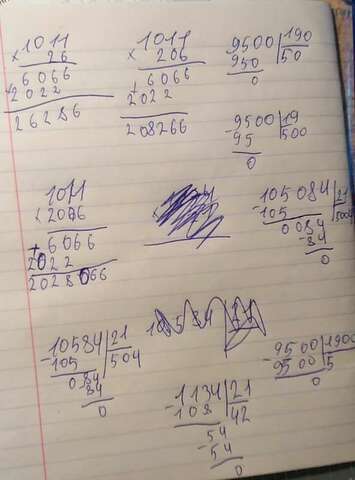 1011
× 26
6066
+
2022
26286
1011
× 206
+ 6066
2022
208266
9500 | 190
950 | 50
0
- 9500 | 19
95 | 500
0
1011
× 2006
+ 6066
2022
2028066
105084 | 21
- 105
0084
- 84
0
- 10584 | 21
105 | 504
084
84
0
- 1134 | 21
108 | 42
- 54
54
0
- 9500 | 1900
9500 | 5
0